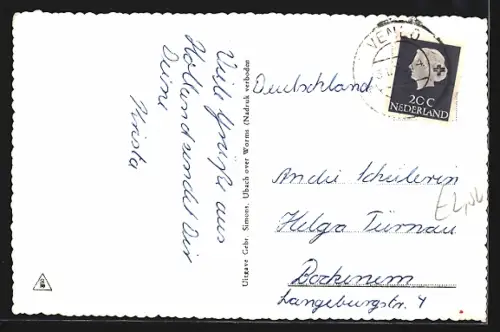 Viele Grüße aus
Holland sendet Dir
Deine
Krista
Uitgave Gebr. Simons, Ubach over Worms (Nadruk verboden
VENLO
20 C
NEDERLAND
Deutschland
An die Schülerin
Helga Türnau
Bockenem
Langeburgstr. 4